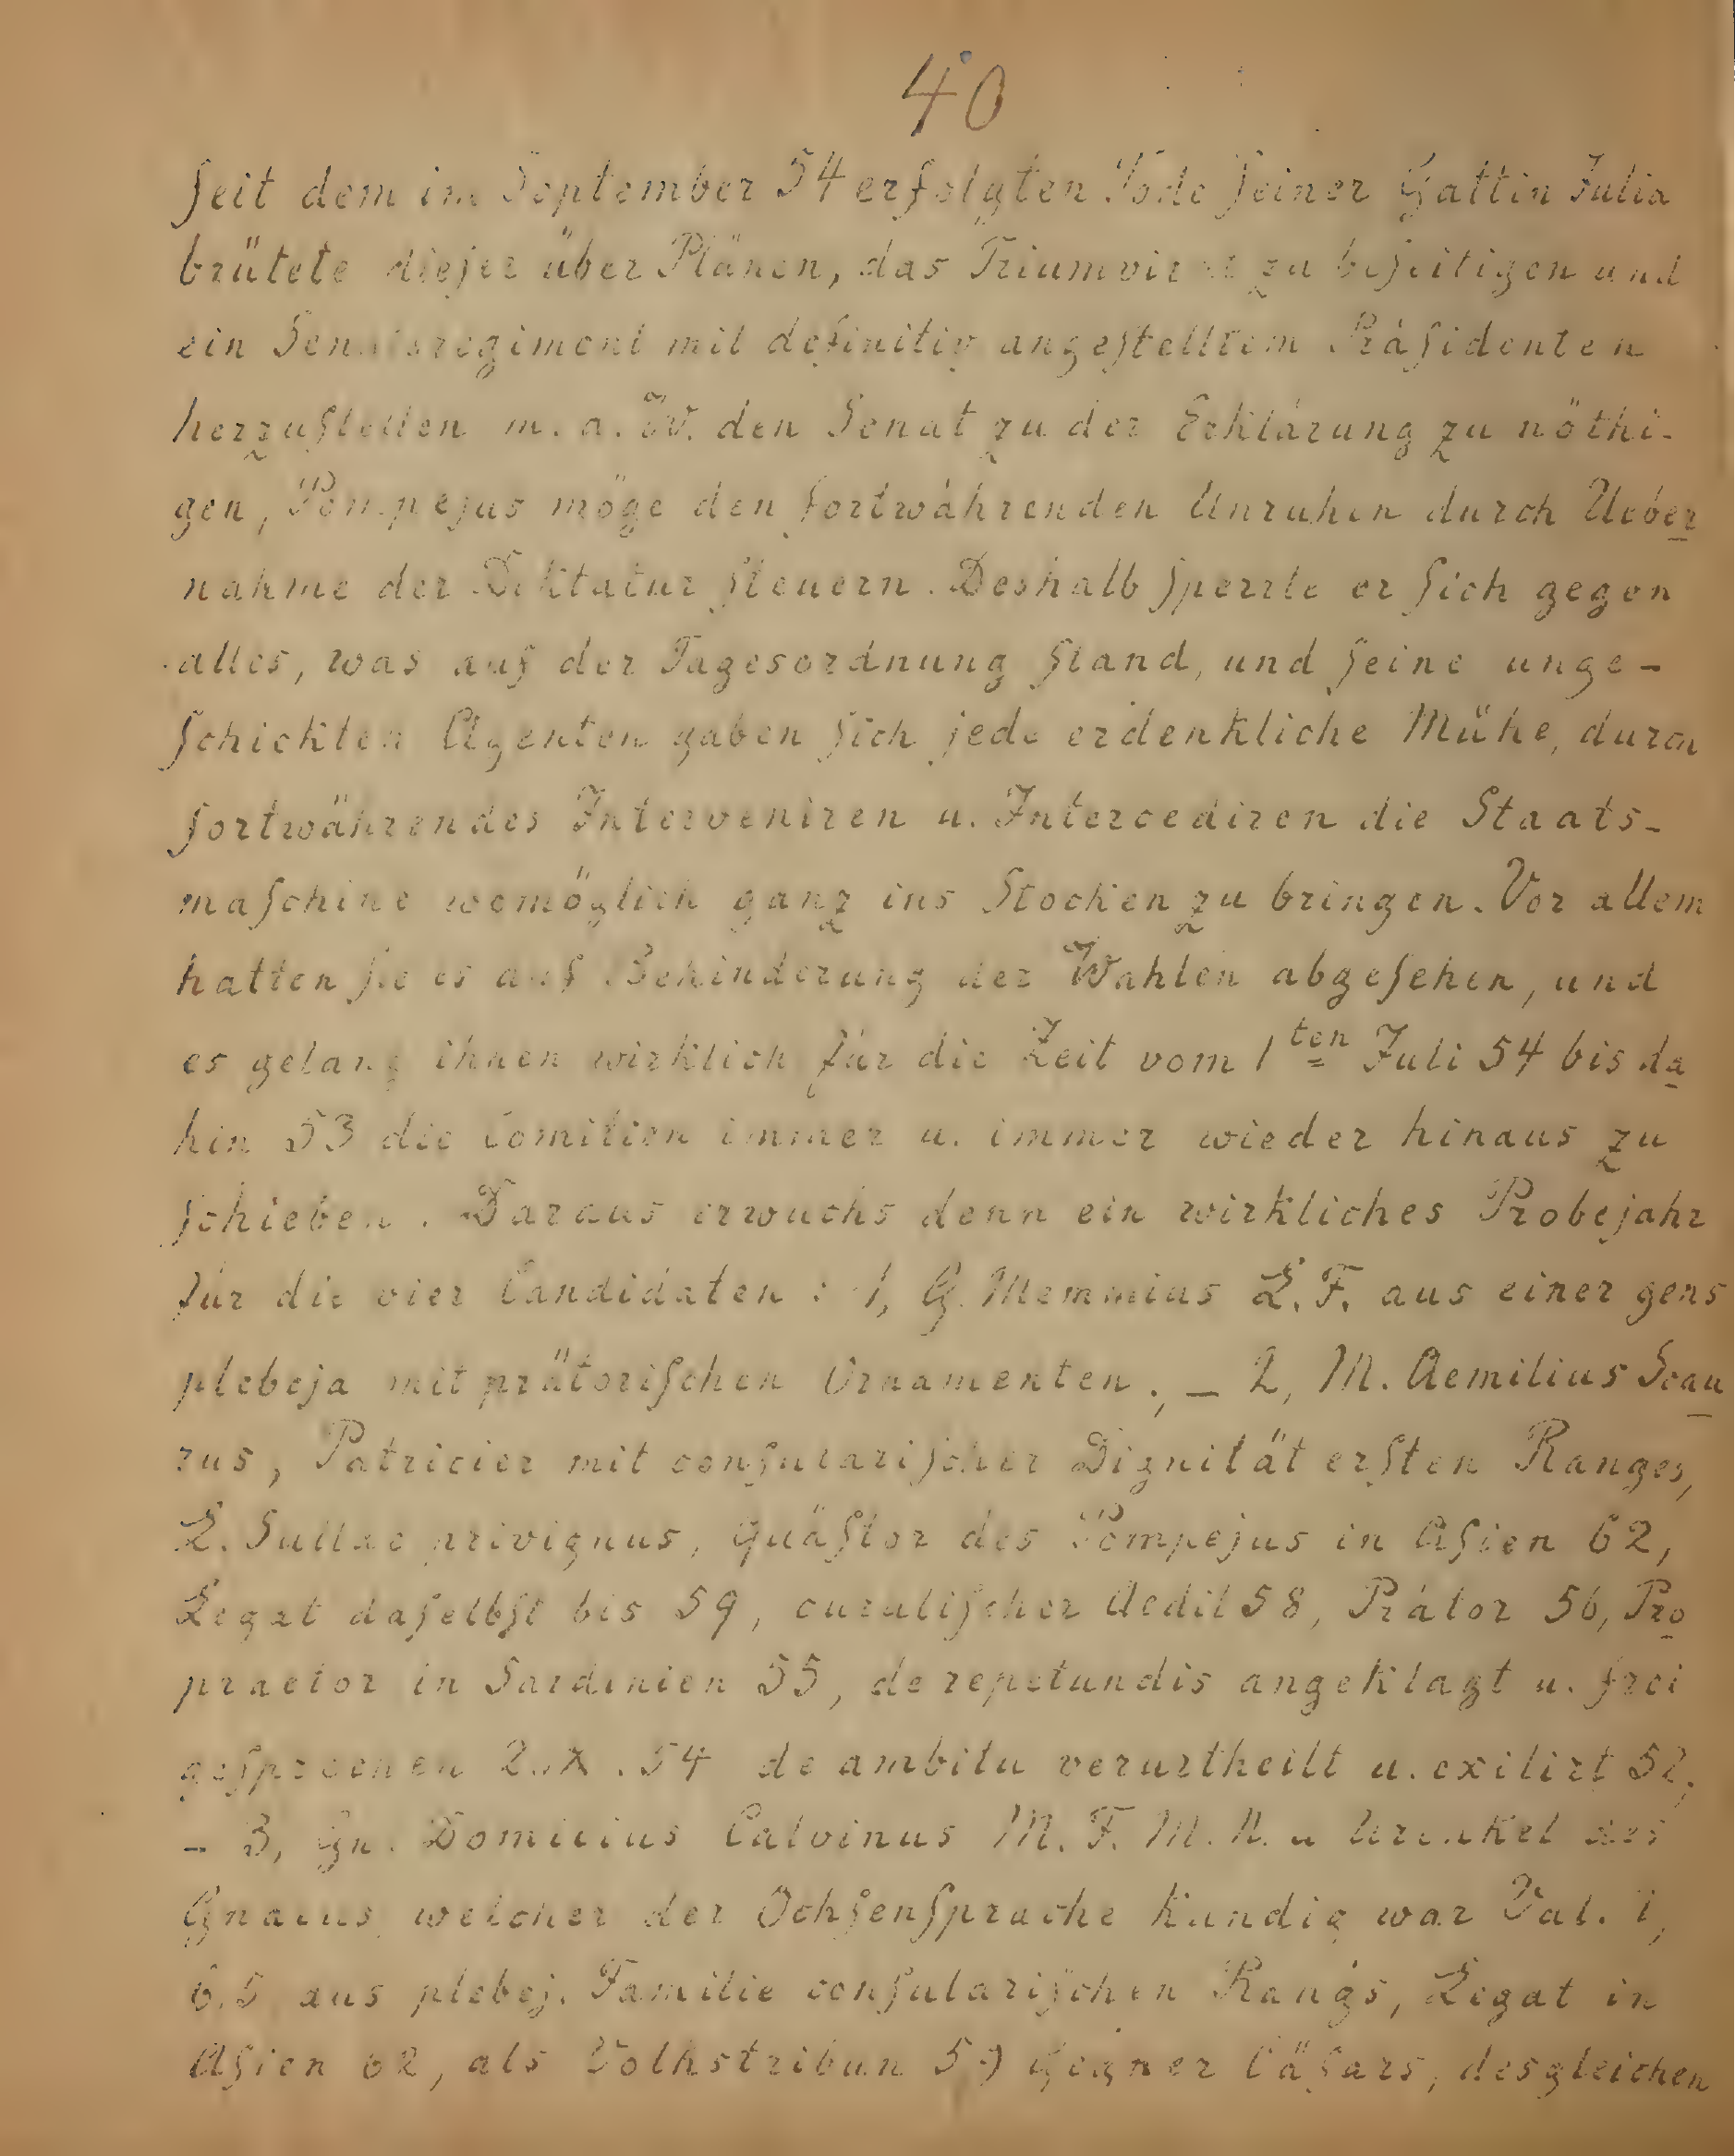 40
ſeit dem im September 54 erfolgten Tode ſeiner Gattin Julia
brütete dieſer über Plänen, das Triumvirat zu beſeitigen und
ein Senatsregiment mit definitiv angeſtelltem Präſidenten
herzuſtellen m. a. W. den Senat zu der Erklärung zu nöthi-
gen, Pompejus möge den fortwährenden Unruhen durch Ueber
nahme der Diktatur ſteuern. Deshalb ſperrte er ſich gegen
alles, was auf der Tagesordnung ſtand, und ſeine unge-
ſchickten Agenten gaben ſich jede erdenkliche Mühe, durch
fortwährendes Interveniren u. Intercediren die Staats-
maſchine womöglich ganz ins Stocken zu bringen. Vor allem
hatten ſie es auf Behinderung der Wahlen abgeſehen, und
es gelang ihnen wirklich für die Zeit vom 1ten Juli 54 bis da
hin 53 die Comitien immer u. immer wieder hinaus zu
ſchieben. Daraus erwuchs denn ein wirkliches Probejahr
für die vier Candidaten: 1, G. Memmius L. F. aus einer gens
plebeja mit prätoriſchen Ornamenten; – 2, M. Aemilius Scau
rus, Patricier mit conſulariſcher Dignität erſten Ranges,
L. Sullae privignus, Quäſtor des Pompejus in Aſien 62,
Legat daſelbſt bis 59, curuliſcher Aedil 58, Prätor 56, Pro
praetor in Sardinien 55, de repetundis angeklagt u. frei
geſprochen 2. X. 54 de ambitu verurtheilt u. exilirt 52;
– 3, Gn. Domitius Calvinus M. F. M. N. u Urenkel des
Gnaeus welcher der Ochſenſprache kundig war Val. I,
6.5 aus plebej. Familie conſulariſchen Rangs, Legat in
Aſien 62, als Volkstribun 59 Gegner Cäſars, desgleichen